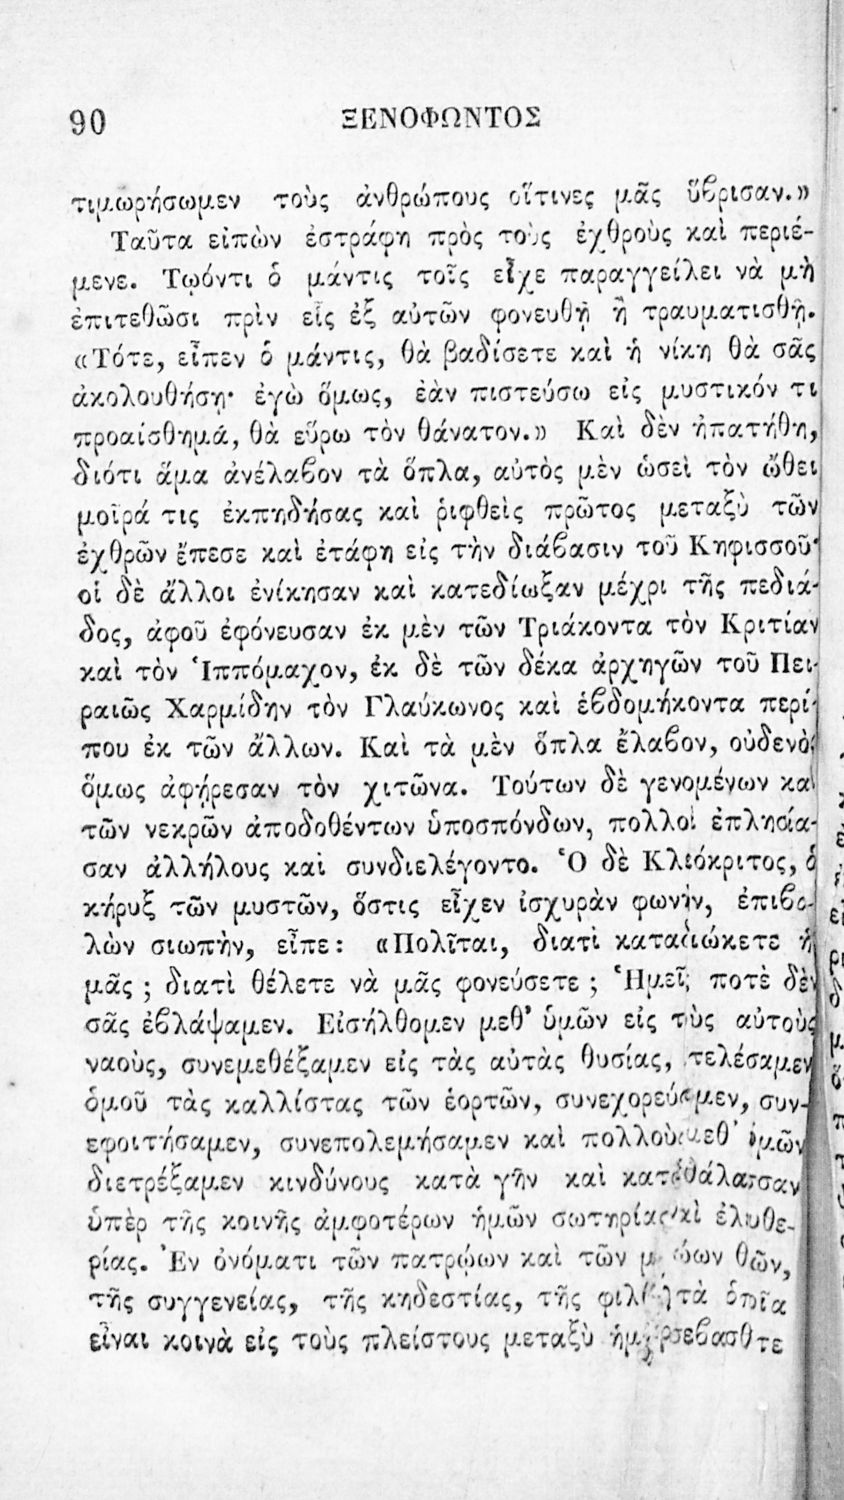 90 ΞΕΝΟΦΩΝΤΟΣ
τιμωρήσωμεν τοὺς ἀνθρώπους οἵτινες μᾶς ὕβρισαν.»
Ταῦτα εἰπὼν ἐστράφη πρὸς τοὺς ἐχθροὺς καὶ περιέ-
μενε. Τῳόντι ὁ μάντις τοῖς εἶχε παραγγείλει νὰ μὴ
ἐπιτεθῶσι πρὶν εἷς ἐξ αὐτῶν φονευθῇ ἢ τραυματισθῇ.
«Τότε, εἶπεν ὁ μάντις, θὰ βαδίσετε καὶ ἡ νίκη θὰ σᾶς
ἀκολουθήσῃ· ἐγὼ ὅμως, ἐὰν πιστεύσω εἰς μυστικόν τι
προαίσθημά, θὰ εὕρω τὸν θάνατον.» Καὶ δὲν ἠπατήθη,
διότι ἅμα ἀνέλαβον τὰ ὅπλα, αὐτὸς μὲν ὡσεὶ τὸν ὤθει
μοῖρά τις ἐκπηδήσας καὶ ῥιφθεὶς πρῶτος μεταξὺ τῶν
ἐχθρῶν ἔπεσε καὶ ἐτάφη εἰς τὴν διάβασιν τοῦ Κηφισσοῦ·
οἱ δὲ ἄλλοι ἐνίκησαν καὶ κατεδίωξαν μέχρι τῆς πεδιά-
δος, ἀφοῦ ἐφόνευσαν ἐκ μὲν τῶν Τριάκοντα τὸν Κριτίαν
καὶ τὸν Ἱππόμαχον, ἐκ δὲ τῶν δέκα ἀρχηγῶν τοῦ Πει-
ραιῶς Χαρμίδην τὸν Γλαύκωνος καὶ ἑβδομήκοντα περί-
που ἐκ τῶν ἄλλων. Καὶ τὰ μὲν ὅπλα ἔλαβον, οὐδενὸς
ὅμως ἀφῄρεσαν τὸν χιτῶνα. Τούτων δὲ γενομένων καὶ
τῶν νεκρῶν ἀποδοθέντων ὑποσπόνδων, πολλοὶ ἐπλησία-
σαν ἀλλήλους καὶ συνδιελέγοντο. Ὁ δὲ Κλεόκριτος, ὁ
κήρυξ τῶν μυστῶν, ὅστις εἶχεν ἰσχυρὰν φωνὴν, ἐπιβα-
λὼν σιωπὴν, εἶπε: «Πολῖται, διατὶ καταδιώκετε ἡ
μᾶς ; διατὶ θέλετε νὰ μᾶς φονεύσετε ; Ἡμεῖς ποτὲ δὲν
σᾶς ἐβλάψαμεν. Εἰσήλθομεν μεθ' ὑμῶν εἰς τοὺς αὐτοὺς
ναοὺς, συνεμεθέξαμεν εἰς τὰς αὐτὰς θυσίας, τελέσαμεν
ὁμοῦ τὰς καλλίστας τῶν ἑορτῶν, συνεχορεύσαμεν, συν-
εφοιτήσαμεν, συνεπολεμήσαμεν καὶ πολλοὺς μεθ' ὑμῶν
διετρέξαμεν κινδύνους κατὰ γῆν καὶ κατὰ θάλασσαν
ὑπὲρ τῆς κοινῆς ἀμφοτέρων ἡμῶν σωτηρίας καὶ ἐλευθε-
ρίας. Ἐν ὀνόματι τῶν πατρῴων καὶ τῶν θεῶν,
τῆς συγγενείας, τῆς κηδεστίας, τῆς τὰ ὁποῖα
εἶναι κοινὰ εἰς τοὺς πλείστους μεταξὺ